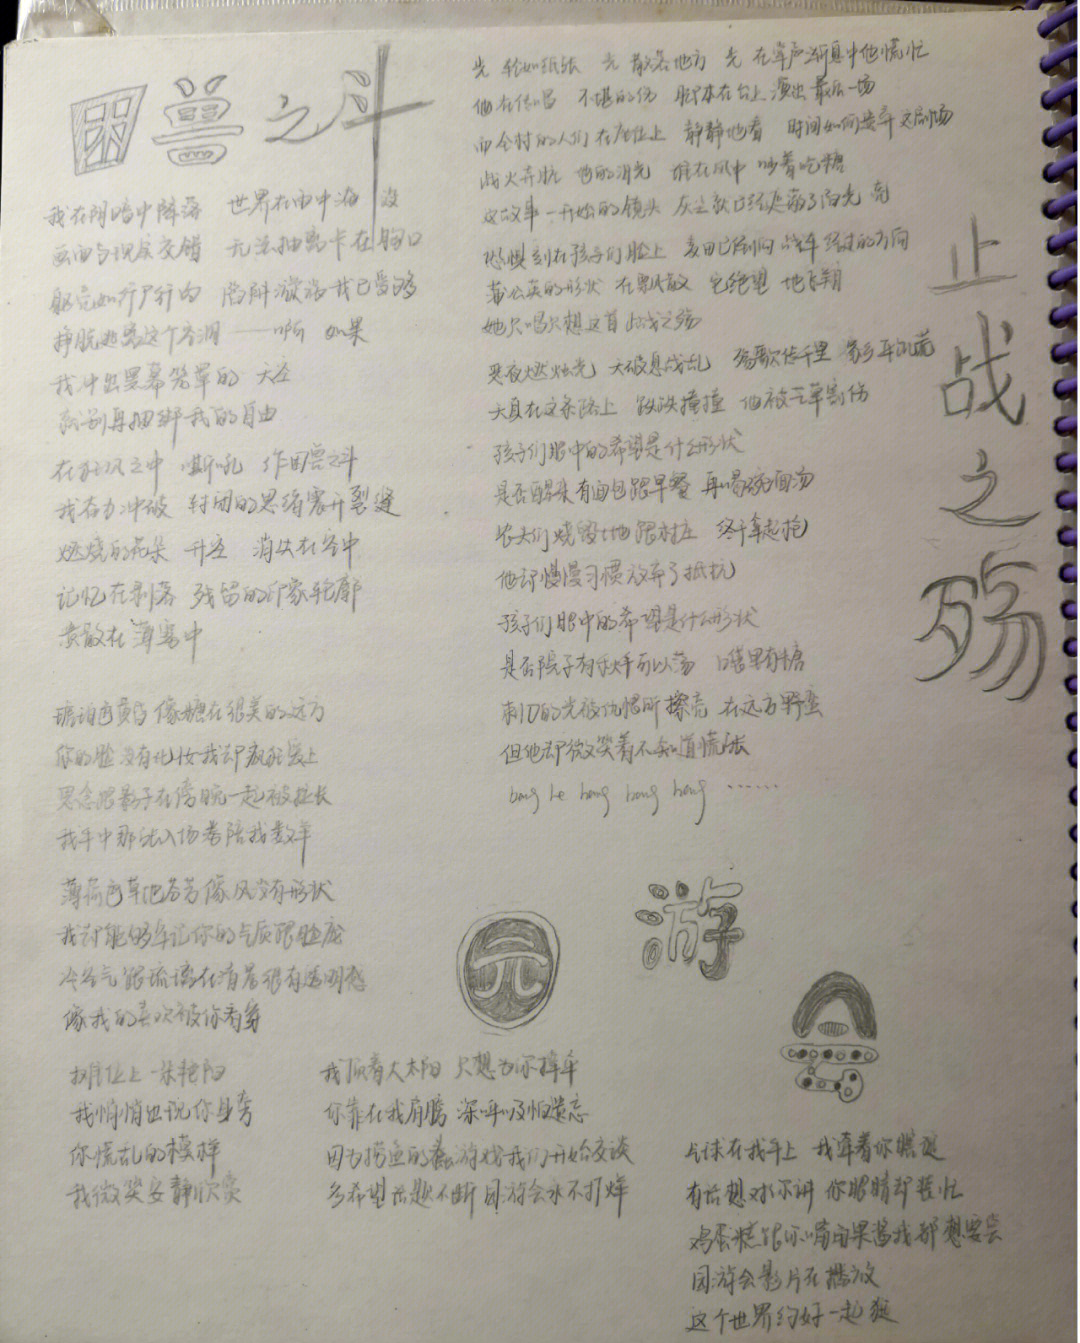 困兽之斗
我在阴暗中降落 世界在雨中淹没
画面与现实交错 无法抽离卡在胸口
躯壳如行尸行肉 我已受够
挣脱逃离这个 如果
我冲出黑幕笼罩的 天空
别再捆绑我的自由
在狂风之中 嘶吼 作困兽之斗
我在力冲破 封闭的思绪撕开裂缝
燃烧的花朵 升空 消失在空中
记忆在剥落 残留的印象轮廓
涣散在薄雾中
琥珀色黄昏像糖在很美的远方
你的脸没有化妆我却疯狂爱上
思念跟影子在傍晚一起被拉长
我手中那张入场券陪我数羊
薄荷色草地芬芳像风没有形状
我却能够牢记你的气质跟脸庞
冷空气跟琉璃在清晨很有透明感
像我的喜欢被你看穿
摊位上一朵艳阳
我悄悄出现你身旁
你慌乱的模样
我微笑安静欣赏
止战之殇
光 轻如纸张 光 散落地方 光 在掌声渐息中他慌忙
他在传唱 不堪的伤 脚本在台上 演出最后一场
而全村的人们在座位上 静静地看 时间如何遗弃这剧场
战火弃 他的泪光 谁在风中 吵着吃糖
这故事一开始的镜头 灰尘就已经遮蔽了阳光 亮
恐惧刻在孩子们脸上 麦田已倒向 战车经过的方向
蒲公英的形状 在飘散 它绝望 地飞翔
她只唱只想这首 止战之殇
黑夜燃烛光 天破息战乱 殇歌传千里 家乡平饥荒
天真在这条路上 跌跌撞撞 他被芒草割伤
孩子们眼中的希望是什么形状
是否醒来有面包跟早餐 再喝碗面汤
农夫们烧毁土地跟村庄 终于拿起枪
他却慢慢习惯放弃了抵抗
孩子们眼中的希望是什么形状
是否院子有秋千可以荡 口袋里有糖
刺刀的光被仇恨所擦亮 在远方野蛮
但他却微笑着不知道慌张
游
元
会
我顶着大太阳 只想为你撑伞
你靠在我肩膀 深呼吸怕遗忘
因为捞鱼的蠢游戏我们开始交谈
多希望话题不断园游会永不打烊
气球在我手上 我牵着你瞎逛
有话想对你讲 你眼睛却装忙
鸡蛋糕跟你嘴角果酱我都想要尝
园游会影片在播放
这个世界约好一起逛